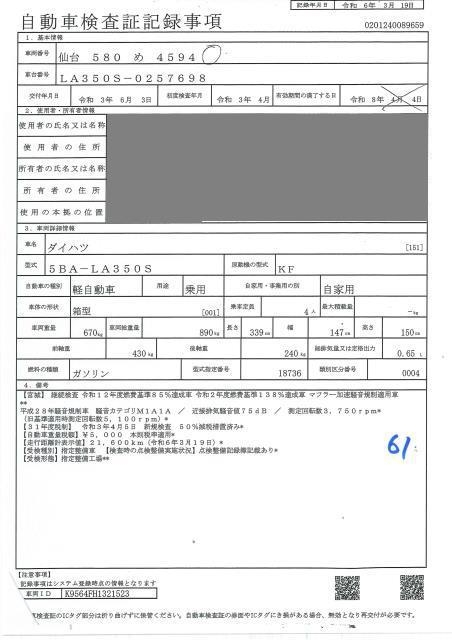 記録年月日 令和 6年 3月 19日
自動車検査証記録事項
0201240089659
1. 基本情報
車両番号 仙台 580 め 4594
車台番号 LA350S-0257698
交付年月日 令和 3年 6月 3日 初度検査年月 令和 3年 4月 有効期間の満了する日 令和 8年 4月 4日
2. 使用者・所有者情報
使用者の氏名又は名称
使用者の住所
所有者の氏名又は名称
所有者の住所
使用の本拠の位置
3. 車両詳細情報
車名 ダイハツ [151]
型式 5BA-LA350S 原動機の型式 KF
自動車の種別 軽自動車 用途 乗用 自家用・事業用の別 自家用
車体の形状 箱型 [001] 乗車定員 4人 最大積載量 -kg
車両重量 670kg 車両総重量 890kg 長さ 339cm 幅 147cm 高さ 150cm
前軸重 430kg 後軸重 240kg 総排気量又は定格出力 0.65L
燃料の種類 ガソリン 型式指定番号 18736 類別区分番号 0004
4. 備考
【宮城】 継続検査 令和12年度燃費基準85%達成車 令和2年度燃費基準138%達成車 マフラー加速騒音規制適用車
**
平成28年騒音規制車 騒音カテゴリM1A1A / 近接排気騒音値75dB / 測定回転数3,750rpm*
(旧基準適用時測定回転数5,100rpm)*
【31年度税制】 令和3年4月5日 新規検査 50%減税措置済み*
【自動車重量税額】¥5,000 本則税率適用*
【走行距離計表示値】21,600km(令和6年3月19日)*
【受検種別】指定整備車 【検査時の点検整備実施状況】点検整備記録簿記載あり*
【受検形態】指定整備工場**
61
【注意事項】
記録事項はシステム登録時点の情報となります
車両ID K9564FH1321523
車検査証のICタグ部分は折り曲げずに保管ください。自動車検査証の券面やICタグにき損がある場合、無効となり再交付が必要です。